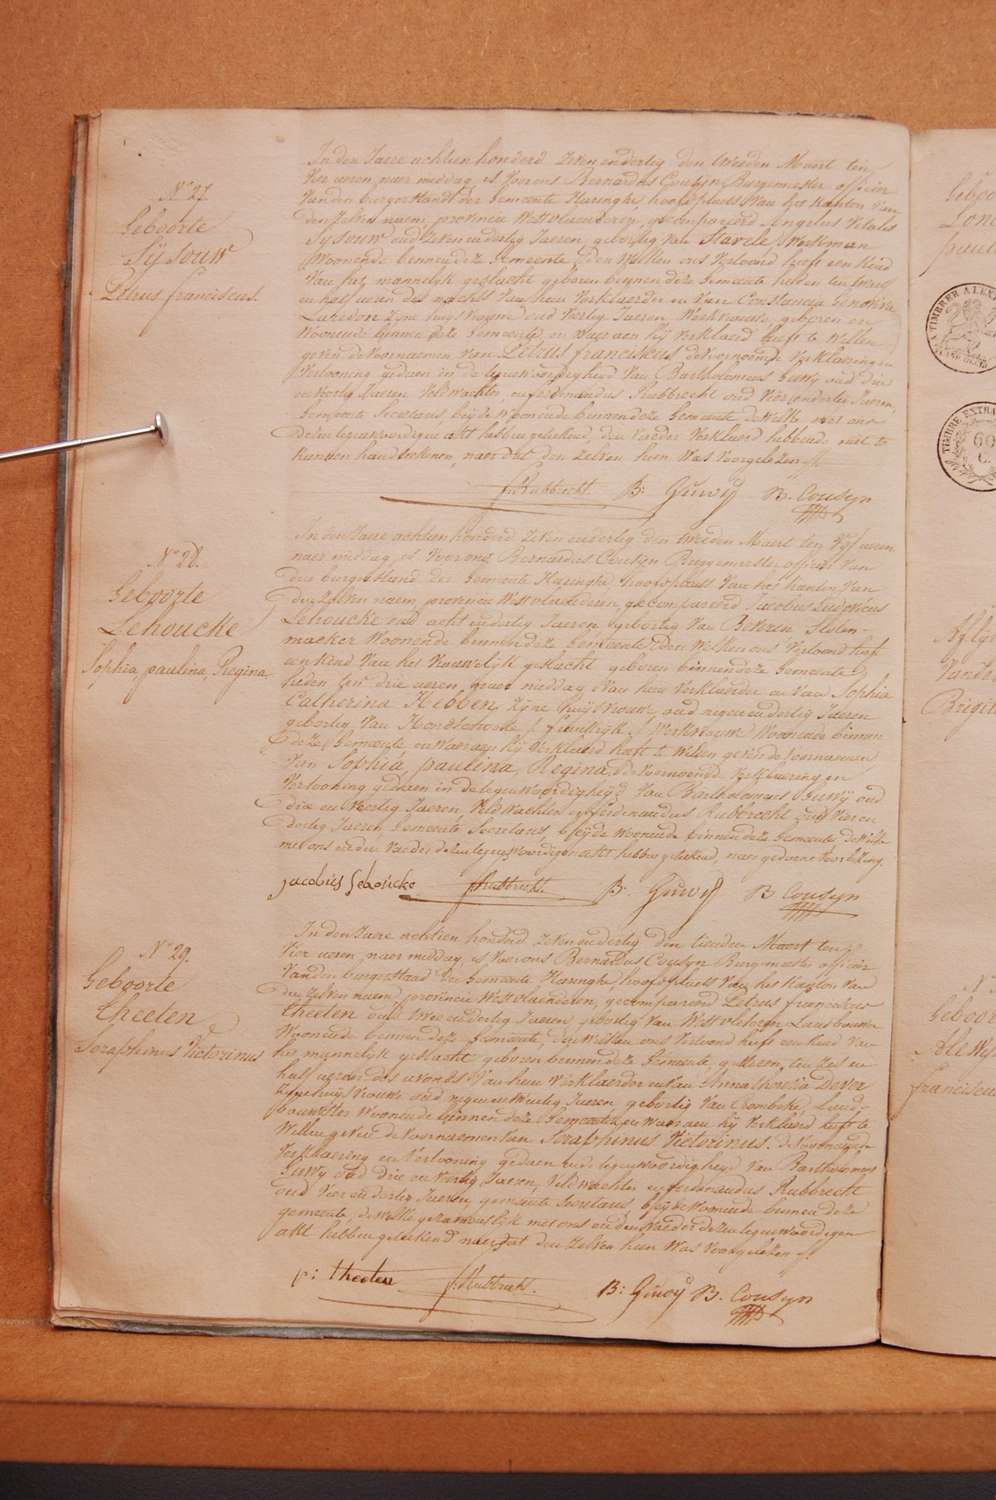 N° 27
Geboorte
Sÿsouw
Petrus franciscus.
In den Jaere achtien honderd zeven endertig den tweeden Maert ten
Vier ueren naer middag, is Voor ons Bernardus Cousyn Burgemeester officier
Van den burgerstand der Gemeente Haringhe hoofdplaets Van het Kanton Van
den zelven naem, provincie Westvlaenderen, gecompareerd Angelus Vitalis
Sysouw oud zeven endertig Jaeren, geboortig Van Stavele, Werkman
Woonende binnen deze Gemeente, den Welken ons Vertoond heeft een Kind
Van het mannelijk geslacht geboren binnen deze Gemeente heden ten
en half ueren des nachts Van hem Verklaerder en Van Constancia Genoveva
zÿne huysvrouwe oud Veertig Jaeren, Werkvrouwe, geboren en
Woonende binnen deze Gemeente en Waer aen hij Verklaerd heeft te Willen
geven de Voornaemen Van Petrus franciscus de Voornoemde Verklaering en
Vertooning gedaen in de tegenwoordigheyd Van Bartholomeus Guwÿ oud drie
en Veertig Jaeren, Veldwachter, en ferdinandus Rubbrecht oud Vier en dertig Jaeren,
Gemeente Secretaris, beÿde Woonende binnen deze Gemeente, de Welke met ons
deze tegenwoordige akt hebben geteekend, den Vaeder Verklaerd hebbende niet te
Kunnen handteekenen, naer dat den zelven hem Was Voorgelezen
f: Rubbrecht. B: Guwÿ B. Cousyn
N° 28.
Geboorte
Lehoucke
Sophia paulina, Regina
In den Jaere achtien honderd zeven endertig den tweeden Maert ten Vyf ueren
naer middag, is Voor ons Bernardus Cousyn Burgemeester officier Van
den burgerstand der Gemeente Haringhe hoofdplaets Van het Kanton Van
den Zelven naem, provincie Westvlaenderen, gecompareerd Jacobus Ludovicus
Lehoucke oud acht endertig Jaeren geboortig Van Beveren, Sloten-
maeker Woonende binnen deze Gemeente, den Welken ons Vertoond heeft
een Kind Van het Vrouwelijk geslacht geboren binnen deze Gemeente
heden ten drie ueren naer middag, Van hem Verklaerder en Van Sophia
Catherina Heoben, zÿne huÿsvrouw, oud negen endertig Jaeren
geboortig Van Hondschoote / frankrijk / Werkvrouw, Woonende binnen
deze Gemeente, en Waer aen hij Verklaerd heeft te Willen geven de Voornaemen
Van Sophia paulina, Regina, de Voornoemde Verklaering en
Vertooning gedaen in de tegenwoordigheyd Van Bartholomeus Guwÿ oud
drie en Veertig Jaeren, Veldwachter, en ferdinandus Rubbrecht oud Vier en
dertig Jaeren, Gemeente Secretaris, beÿde Woonende binnen deze Gemeente, de Welke
met ons en den Vaeder deze tegenwoordige akt hebben geteekend, naer gedaene Voorlezing.
jacobus Lehoucke f: Rubbrecht. B: Guwÿ B Cousyn
N° 29.
Geboorte
theeten
Seraphinus Victorinus
In den Jaere achtien honderd zeven endertig den tienden Maert ten
Vier ueren, naer middag, is Voor ons Bernardus Cousyn Burgemeester officier
Van den burgerstand der Gemeente Haringhe, hoofdplaets Van het Kanton Van
den Zelven naem, provincie Westvlaenderen, gecompareerd Petrus franciscus
theeten oud twee endertig Jaeren, geboortig Van Westvleteren, Landbouwer
Woonende binnen deze Gemeente, den Welken ons Vertoond heeft een Kind Van
het mannelijk geslacht geboren binnen deze Gemeente, gisteren, ten zes en
half ueren des avonds, Van hem Verklaerder en Van Anna theresia Dever
zÿne huÿsvrouwe oud negen en twintig Jaeren, geboortig Van Crombeke, Land-
bouwster Woonende binnen deze Gemeente en Waer aen hij Verklaerd heeft te
Willen geven de Voornaemen Van Seraphinus Victorinus. de Voornoemde
Verklaering en Vertooning gedaen in de tegenwoordigheyd Van Bartholomeus
Guwÿ oud drie en Veertig Jaeren, Veldwachter en ferdinandus Rubbrecht
oud Vier endertig Jaeren, gemeente Secretaris, beÿde Woonende binnen deze
gemeente, de Welke gezamentlijk met ons en den Vaeder deze tegenwoordigen
akt hebben geteekend naer dat den zelven hem Was Voorgelezen
p: theeten f: Rubbrecht. B: Guwÿ B. Cousyn
Geboo
Lone
paul
A TIMBRER A L'EX
TIMBRE EXTRA
60
C.
Aflÿ
Vand
Brigit
N°
Geboor
Alewÿ
franciscu